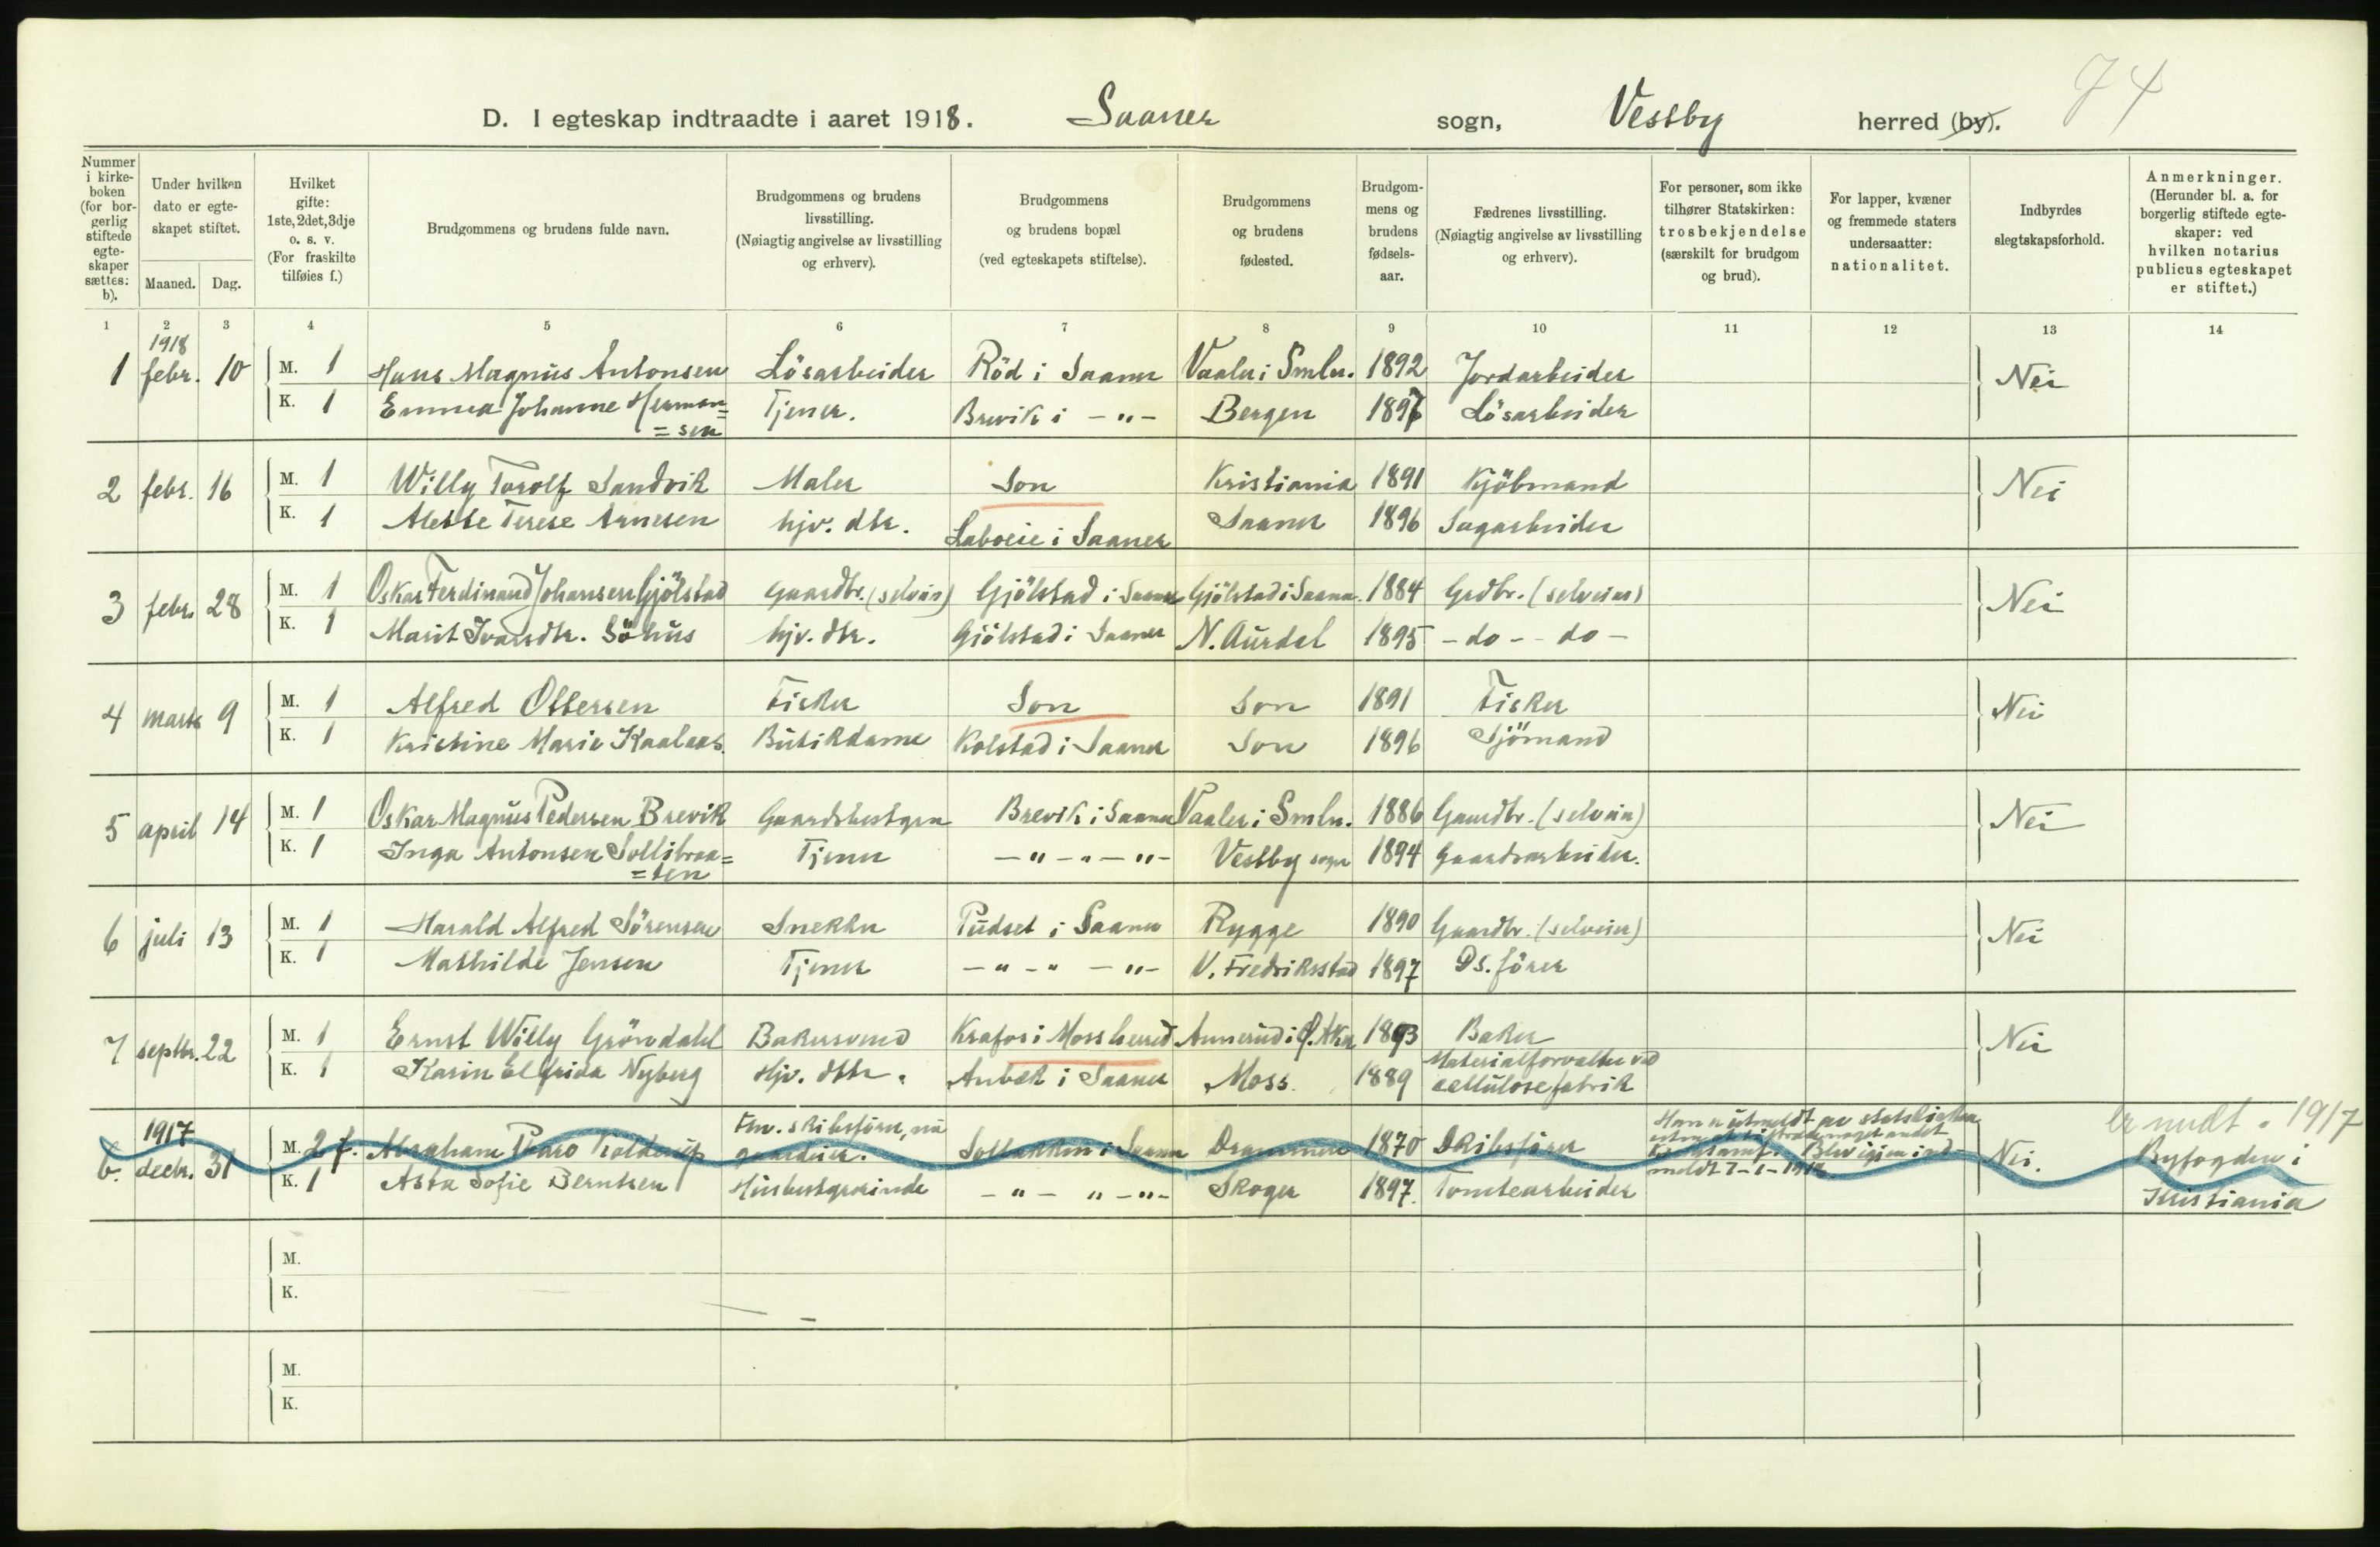 74
D. I egteskap indtraadte i aaret 1918. Saaner sogn, Vestby herred (by).
Nummer i kirkeboken (for borgerlig stiftede egteskaper sættes: b).
Under hvilken dato er egteskapet stiftet.
Maaned. Dag.
Hvilket gifte: 1ste, 2det, 3dje o. s. v. (For fraskilte tilføies f.)
Brudgommens og brudens fulde navn.
Brudgommens og brudens livsstilling. (Nøiagtig angivelse av livsstilling og erhverv).
Brudgommens og brudens bopæl (ved egteskapets stiftelse).
Brudgommens og brudens fødested.
Brudgommens og brudens fødselsaar.
Fædrenes livsstilling. (Nøiagtig angivelse av livsstilling og erhverv).
For personer, som ikke tilhører Statskirken: trosbekjendelse (særskilt for brudgom og brud).
For lapper, kvæner og fremmede staters undersaatter: nationalitet.
Indbyrdes slegtskapsforhold.
Anmerkninger. (Herunder bl. a. for borgerlig stiftede egteskaper: ved hvilken notarius publicus egteskapet er stiftet.)
1 2 3 4 5 6 7 8 9 10 11 12 13 14
1918
1 febr. 10 M. 1 Hans Magnus Antonsen Lösarbeider Röd i Saaner Vaaler i Smln. 1892 Jordarbeider Nei
K. 1 Emma Johanne Herman= Tjener. Brevik i -"- Bergen 1897 Lösarbeider
=sen
2 febr. 16 M. 1 Willy Torolf Sandvik Maler Son Kristiania 1891 Kjöbmand Nei
K. 1 Alette Terese Arnesen hjv. dtr. Laboeie i Saaner Saaner 1896 Sagarbeider
3 febr. 28 M. 1 Oskar Ferdinand Johansen Gjölstad Gaardbr. (selveier) Gjölstad i Saaner Gjölstad i Saaner. 1884 Grdbr. (selveier) Nei
K. 1 Marit Ivarsdtr. Söhus hjv. dtr. Gjölstad i Saaner N. Aurdal 1895 - do - - do -
4 marts 9 M. 1 Alfred Ottersen Fisker Son Son 1891 Fisker Nei
K. 1 Kristine Marie Kaalaas. Butikdame Kolstad i Saaner Son 1896 Sjömand
5 april 14 M. 1 Oskar Magnus Pedersen Brevik Gaardsbestyrer Brevik i Saaner Vaaler i Smln. 1886 Gaardbr. (selveier) Nei
K. 1 Inga Antonsen Sollibraa= Tjener -"-"-"- Vestby sogn 1894 Gaardsarbeider.
=ten
6 juli 13 M. 1 Harald Alfred Sörensen Snekker Pudset i Saaner Rygge 1890 Gaardbr. (selveier) Nei
K. 1 Mathilde Jensen Tjener -"-"-"- V. Fredriksstad 1897 Ds. förer
7 septbr. 22 M. 1 Ernst Willy Gröndahl Bakersvend Krafos i Moss herred Annerud i Ø. Aker 1893 Baker Nei
K. 1 Karin Elfrida Nyberg Hjv. dttr. Anbæk i Saaner Moss. 1889 Materialforvalter ved
cellulosefabrik
1917 Fhv. skibsförer, nu Han er utmeldt av statskirken er medt. 1917
b. decbr. 31 M. 2 f. Abraham gaardeier. Solbakken i Saaner Drammen 1870 Skibsförer Nei. Byfogden i
K. 1 Asta Sofie Berntsen Husbestyrerinde -"-"-"- Skoger 1897. Tomtearbeider Kristiania
M.
K.
M.
K.